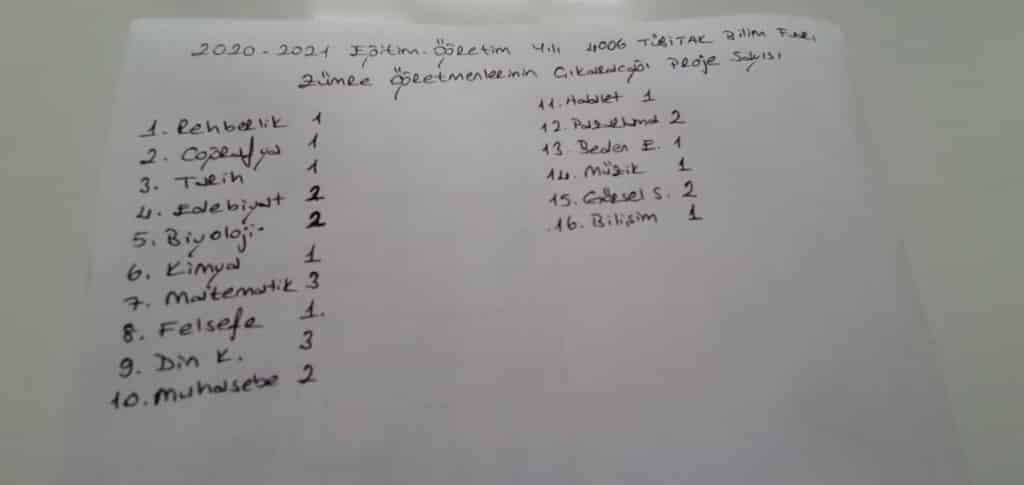 2020-2021 Eğitim-Öğretim Yılı 4006 TÜBİTAK Bilim Fuarı
Zümre Öğretmenlerinin Çıkaracağı Proje Sayısı
1. Rehberlik 1
2. Coğrafya 1
3. Tarih 1
4. Edebiyat 2
5. Biyoloji 2
6. Kimya 1
7. Matematik 3
8. Felsefe 1.
9. Din K. 3
10. Muhasebe 2
11. Adalet 1
12. Pazarlama 2
13. Beden E. 1
14. Müzik 1
15. Görsel S. 2
16. Bilişim 1